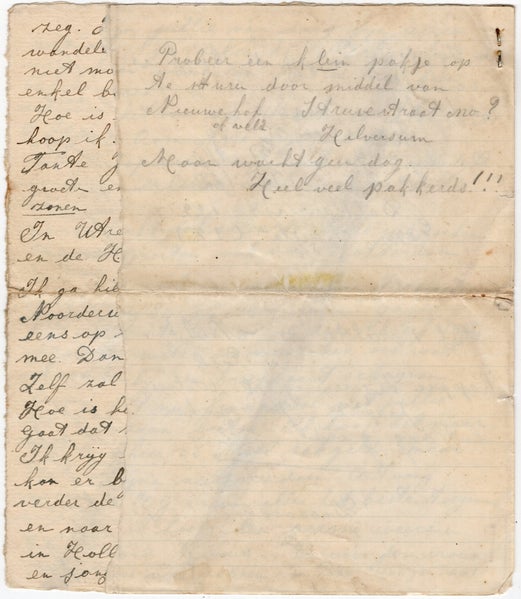 zeg.
wandele
niet mo
enkel b
Hoe is
hoop ik.
Tante
groete en
zonen
In Utre
en de H
Ik ga hie
Noorder
eens op
mee. Dan
Zelf zal
Hoe is he
gaat dat
Ik krijg
kan er b
verder de
en naar
in Holl
en jong
Probeer een klein pakje op
te sturen door middel van
Nieuwe hof Struve straat no ?
of veld Hilversum
Maar wacht geen dag.
Heel veel pakkerds!!!